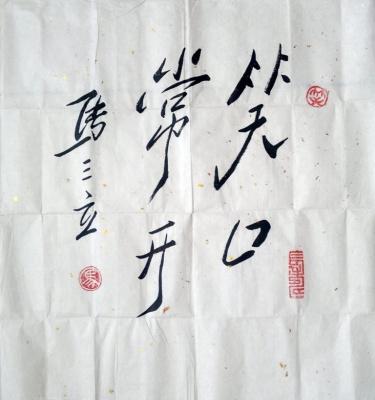 笑口
常开
马三立